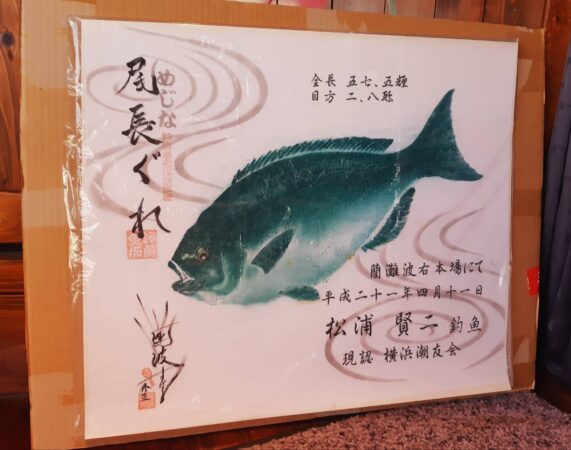 全長 五七、五糎
目方 二、八瓩
めじな
尾長ぐれ
藺灘波右本場にて
平成二十一年四月十一日
松浦 賢二 釣魚
現認 横浜潮友会